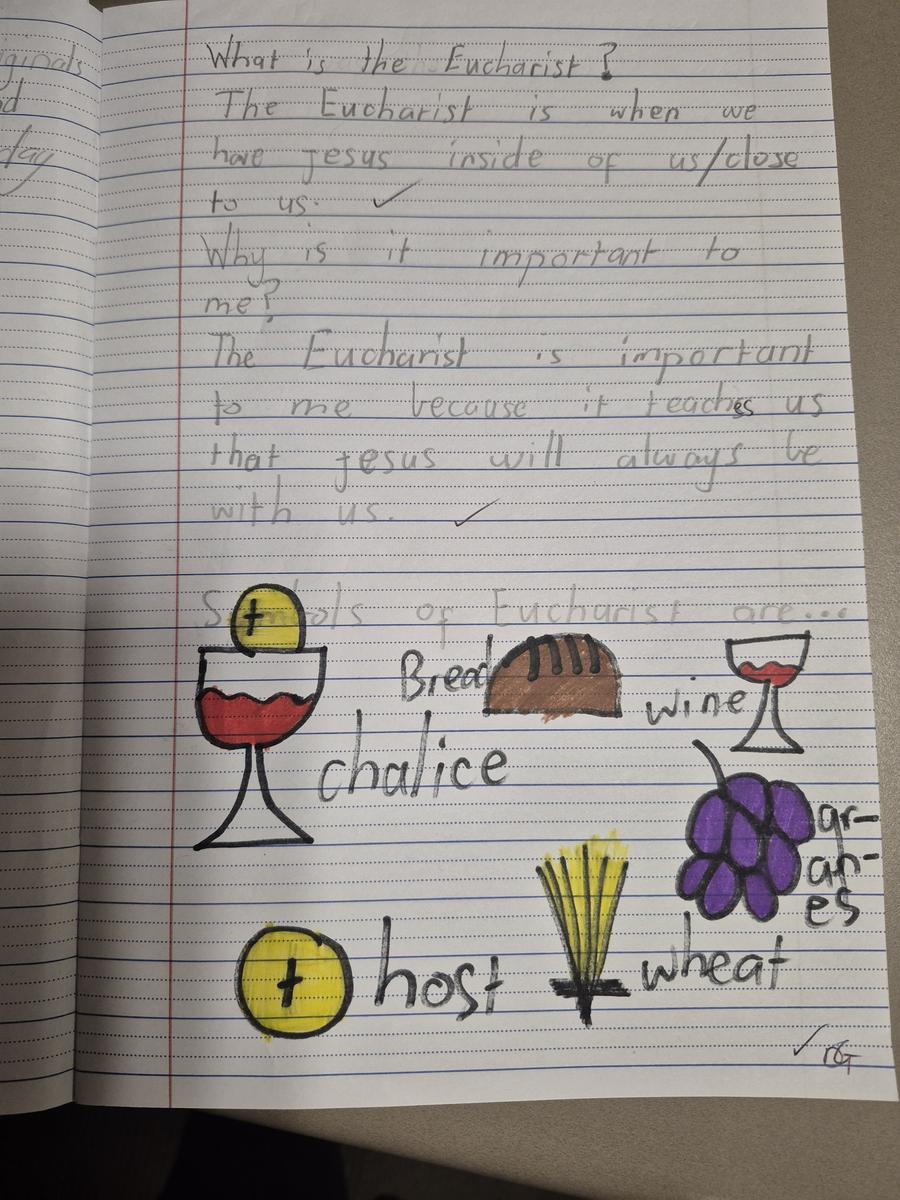 iginals
d
day
What is the Eucharist?
The Eucharist is when we
have jesus inside of us/close
to us.
Why is it important to
me?
The Eucharist is important
to me because it teaches us
that jesus will always be
with us.
Symbols of Eucharist are...
Bread
wine
chalice
gr-
ap-
es
host
wheat
rG